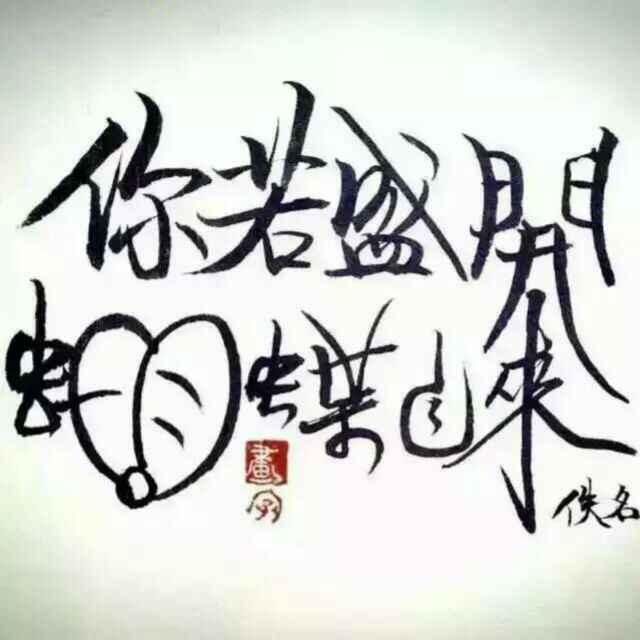 你若盛開
蝴蝶自來
畫字
佚名